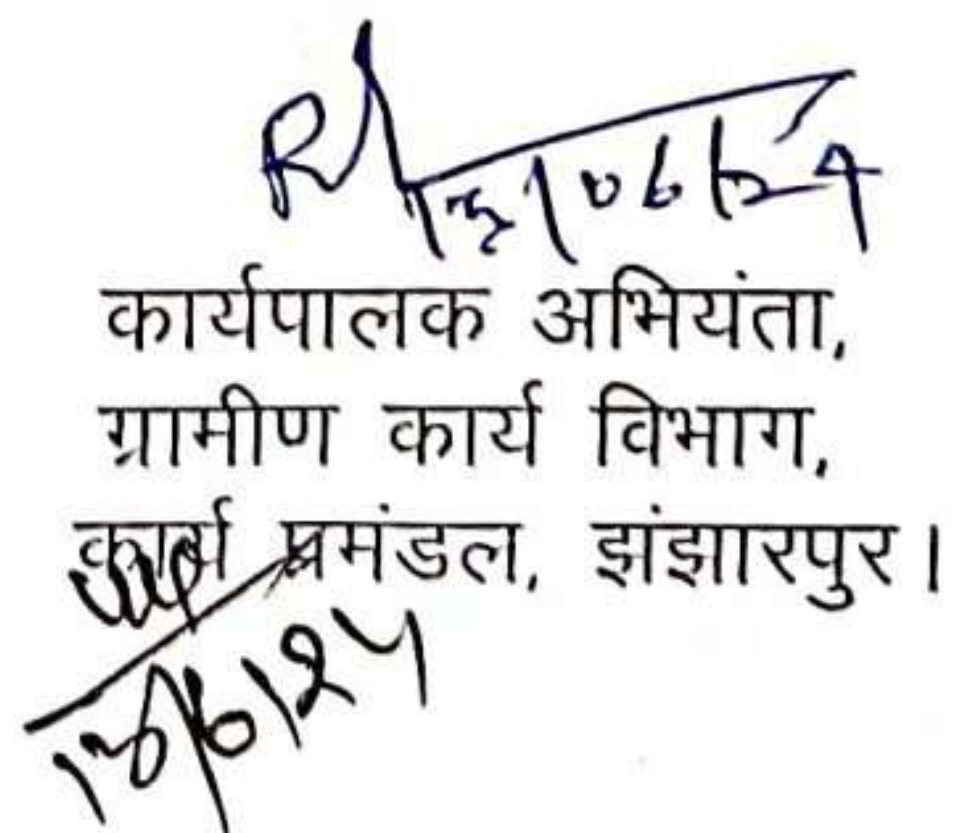 13/06/24
कार्यपालक अभियंता,
ग्रामीण कार्य विभाग,
कार्य प्रमंडल, झंझारपुर।
13/6/24